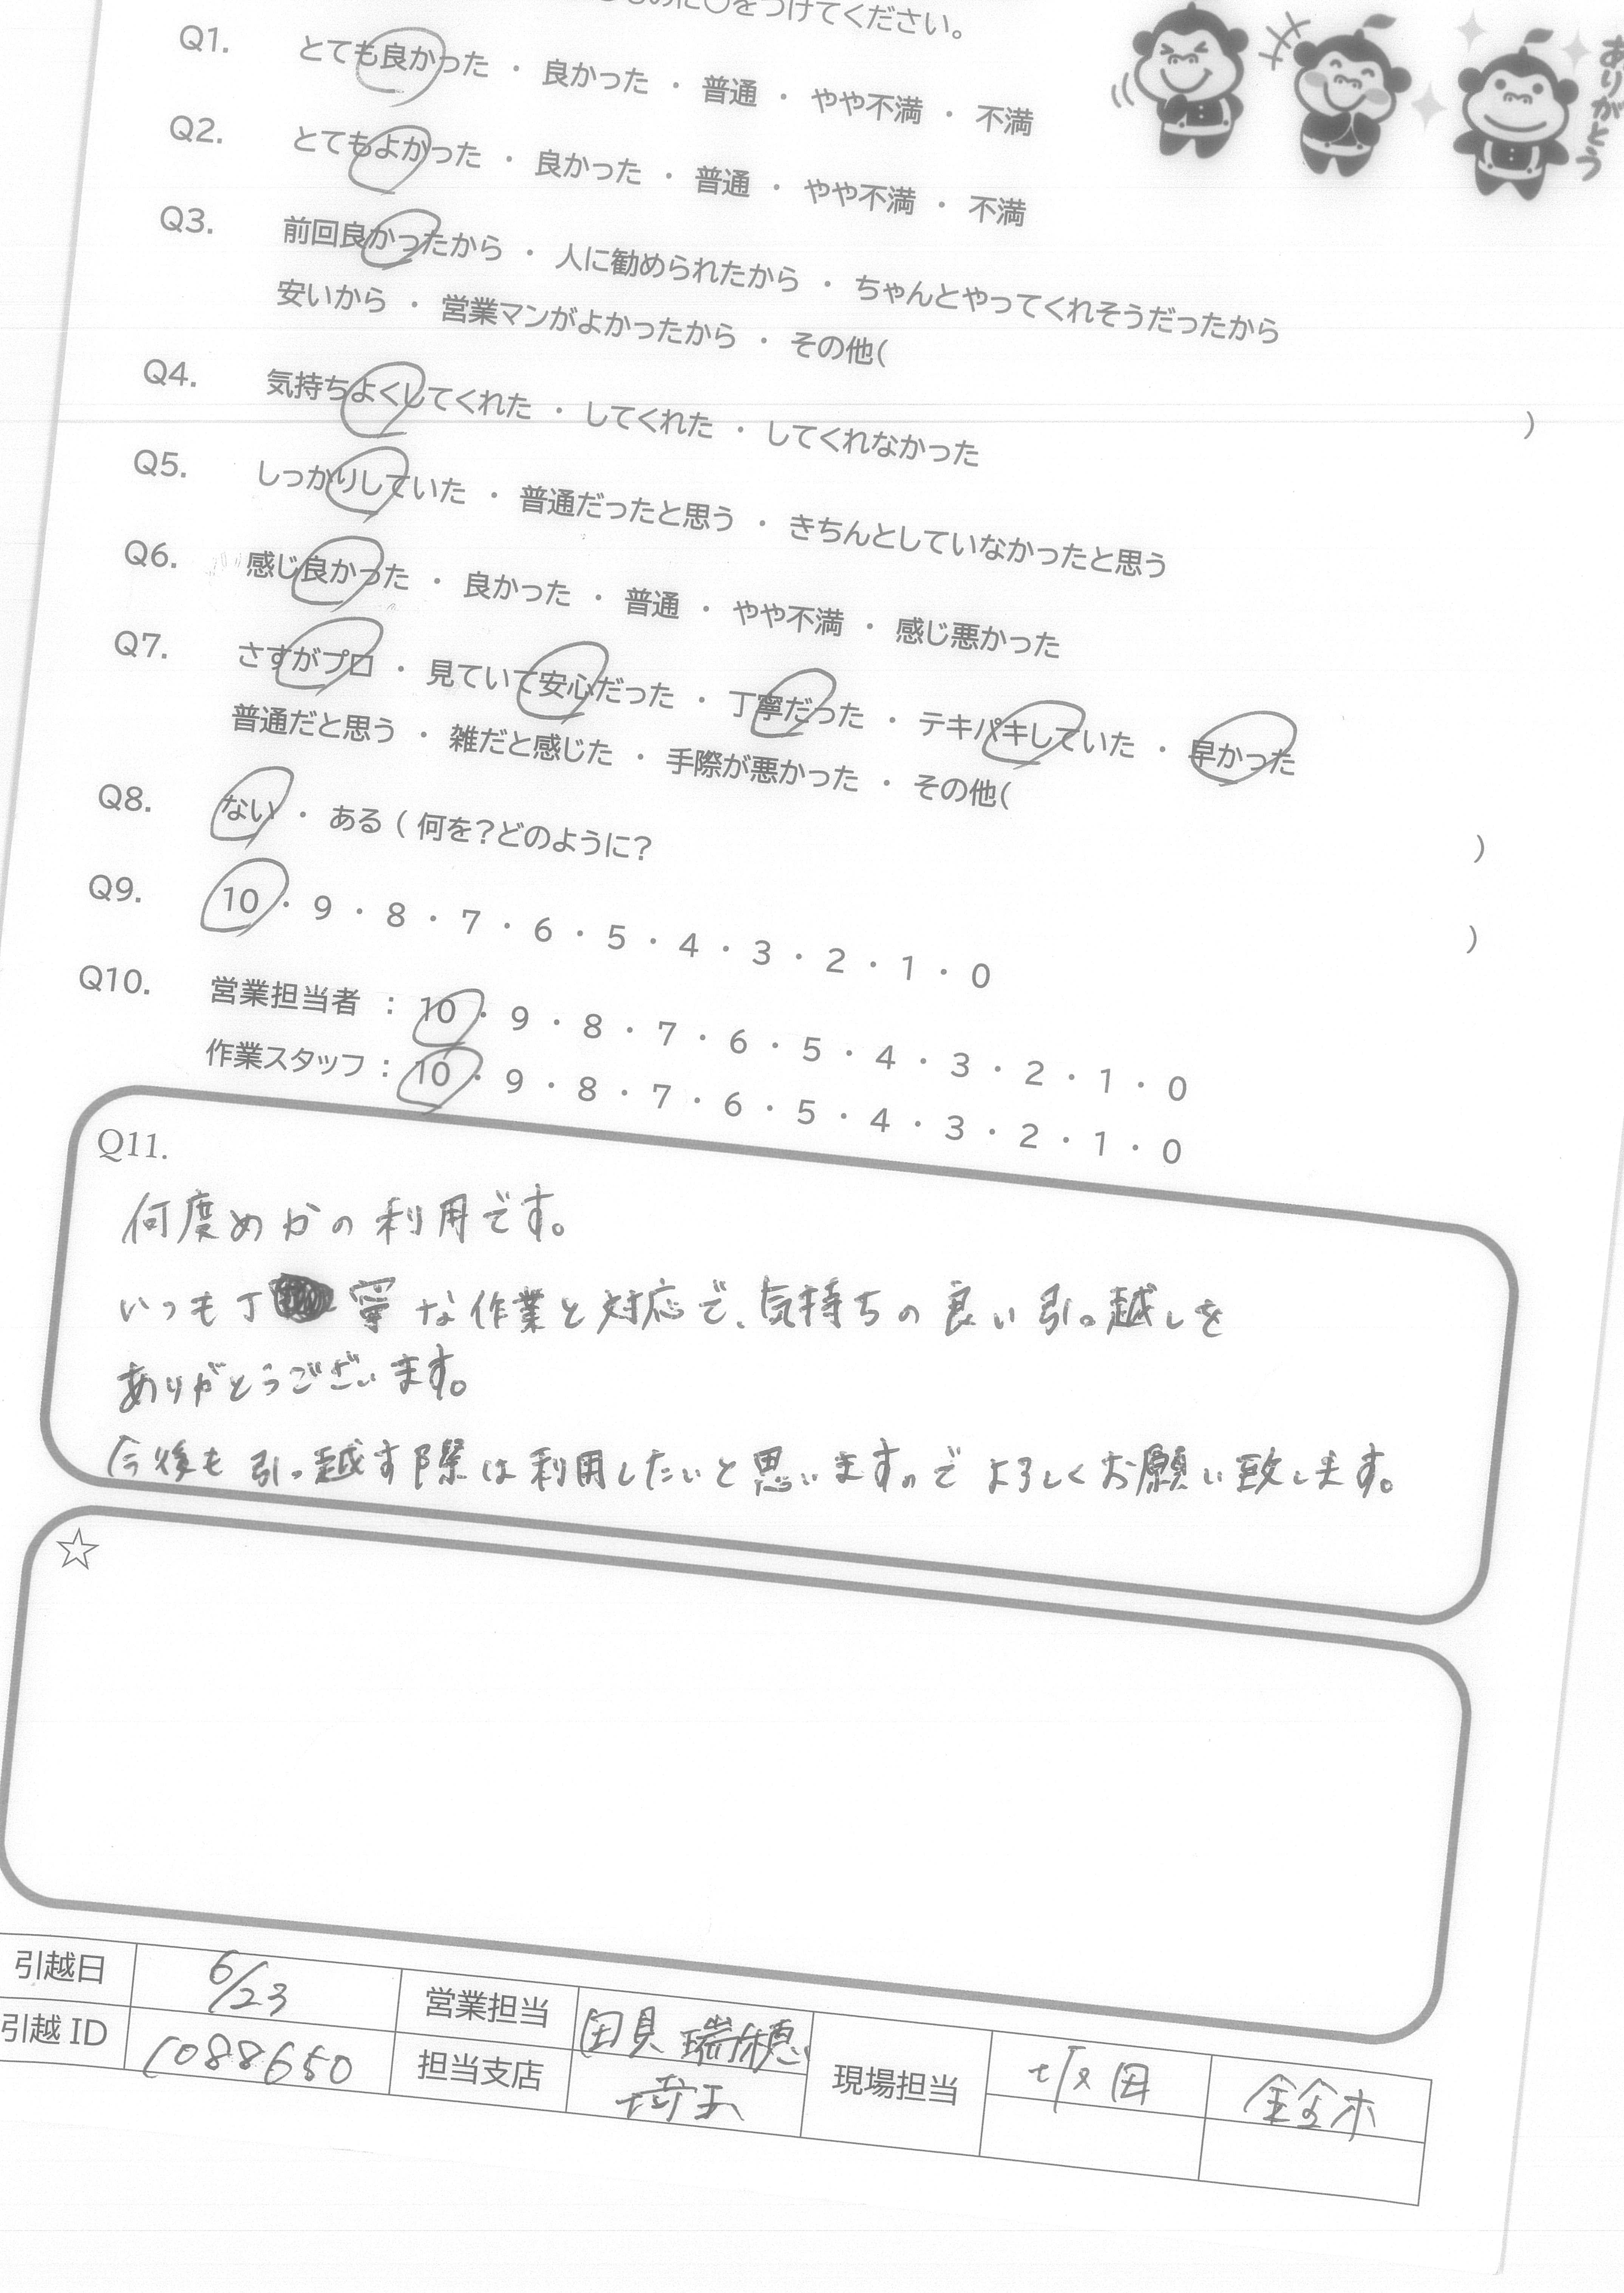 のに○をつけてください。
ありがとう
Q1. とても良かった ・ 良かった ・ 普通 ・ やや不満 ・ 不満
Q2. とてもよかった ・ 良かった ・ 普通 ・ やや不満 ・ 不満
Q3. 前回良かったから ・ 人に勧められたから ・ ちゃんとやってくれそうだったから
安いから ・ 営業マンがよかったから ・ その他( )
Q4. 気持ちよくしてくれた ・ してくれた ・ してくれなかった
Q5. しっかりしていた ・ 普通だったと思う ・ きちんとしていなかったと思う
Q6. 感じ良かった ・ 良かった ・ 普通 ・ やや不満 ・ 感じ悪かった
Q7. さすがプロ ・ 見ていて安心だった ・ 丁寧だった ・ テキパキしていた ・ 早かった
普通だと思う ・ 雑だと感じた ・ 手際が悪かった ・ その他( )
Q8. ない ・ ある ( 何を?どのように? )
Q9. 10 ・ 9 ・ 8 ・ 7 ・ 6 ・ 5 ・ 4 ・ 3 ・ 2 ・ 1 ・ 0
Q10. 営業担当者 : 10 ・ 9 ・ 8 ・ 7 ・ 6 ・ 5 ・ 4 ・ 3 ・ 2 ・ 1 ・ 0
作業スタッフ : 10 ・ 9 ・ 8 ・ 7 ・ 6 ・ 5 ・ 4 ・ 3 ・ 2 ・ 1 ・ 0
Q11.
何度めかの利用です。
いつも丁寧な作業と対応で、気持ちの良い引っ越しを
ありがとうございます。
今後も引っ越す際は利用したいと思いますのでよろしくお願い致します。
☆
引越日 6/23 営業担当 田貝 瑞穂 現場担当 坂田 鈴木
引越 ID 1088650 担当支店 埼玉